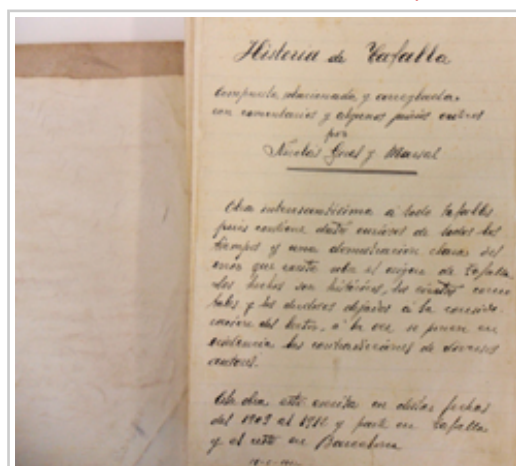 Historia de Tafalla
Compuesta, relacionada y arreglada
con comentarios y algunos juicios
por
Nicolás y
Obra interesantísima á todo Tafallés
pues contiene datos curiosos de todos los
tiempos y una demostración clara del
error que existe sobre el origen de Tafalla.
Los hechos son históricos, los
y los dejados á la conside-
racion del lector, á la vez se ponen en
evidencia las contradicciones de diversos
autores.
Esta obra está escrita en distas fechas
del 1909 al 1912 y parte en Tafalla
y el resto en Barcelona